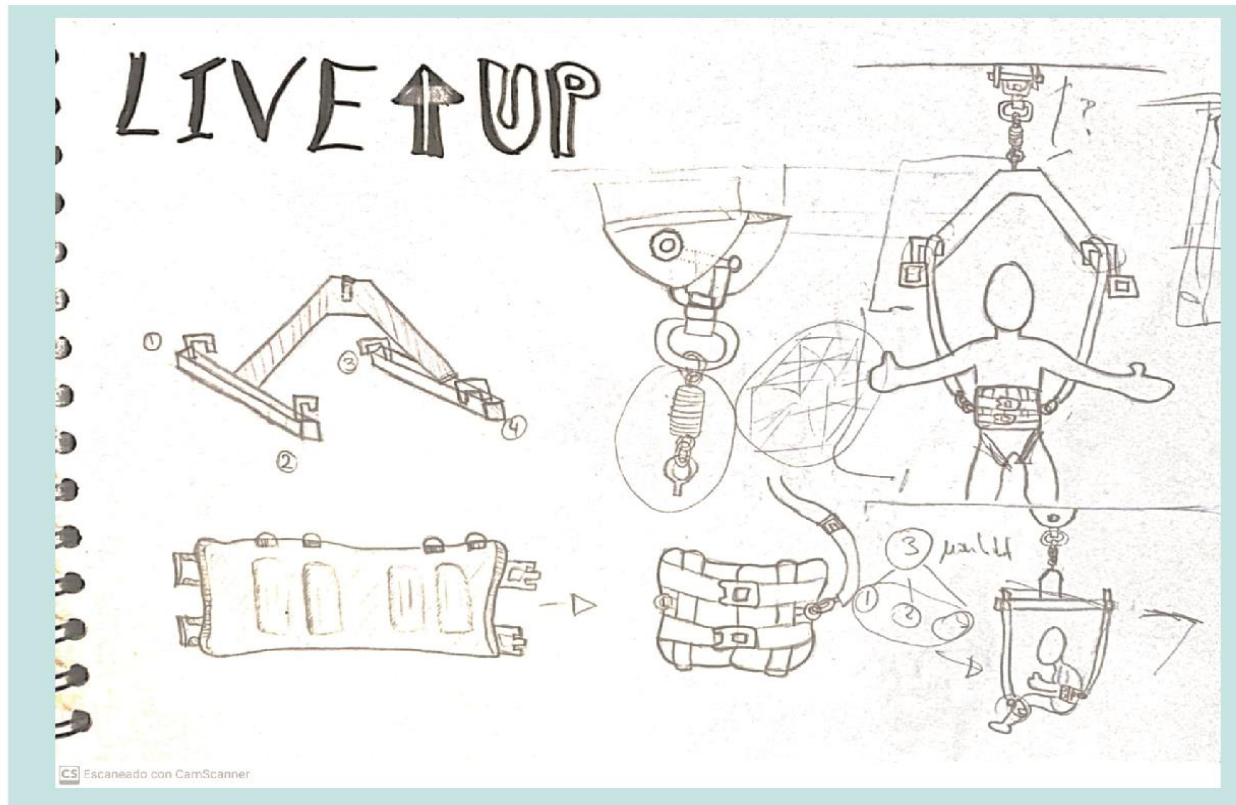 LIVE↑UP
?
①
③
②
④
③
①
②
CS Escaneado con CamScanner